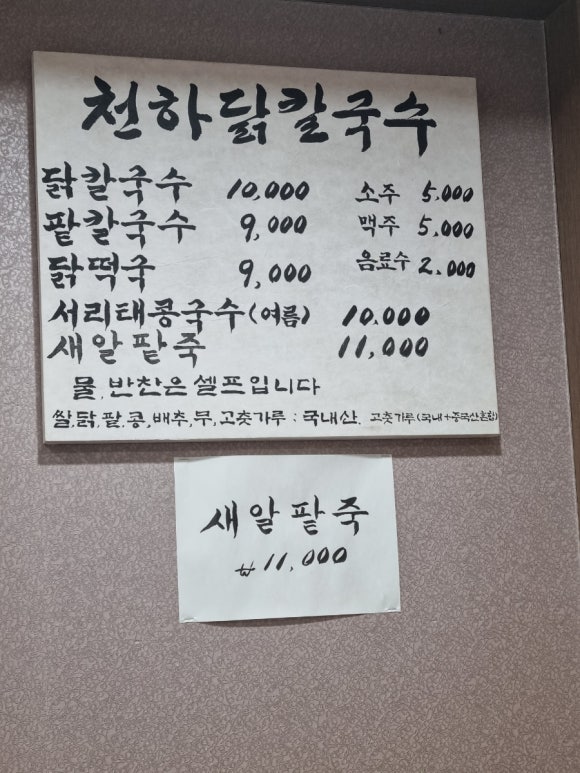 천하닭칼국수
닭칼국수 10,000 소주 5,000
팥칼국수 9,000 맥주 5,000
닭떡국 9,000 음료수 2,000
서리태콩국수(여름) 10,000
새알팥죽 11,000
물, 반찬은 셀프입니다
쌀,닭,팥,콩,배추,무,고춧가루 : 국내산, 고춧가루(국내+중국산혼합)
새알팥죽
₩11,000